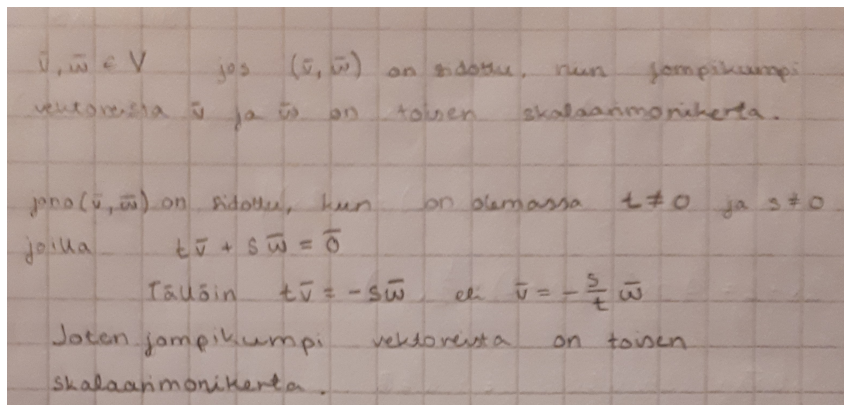 v̄, w̄ ∈ V jos (v̄, w̄) on sidottu, niin jompikumpi
vektoreista v̄ ja w̄ on toisen skalaarimonikerta.
jono (v̄, w̄) on sidottu, kun on olemassa t ≠ 0 ja s ≠ 0
joilla t v̄ + s w̄ = 0̄
Tällöin t v̄ = -s w̄ eli v̄ = - s/t w̄
Joten jompikumpi vektoreista on toisen
skalaarimonikerta.